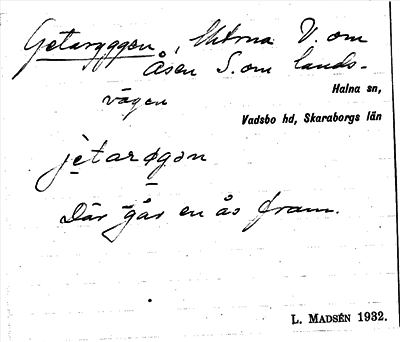 Getaryggen, Utma V. om
Åsen S. om lands-
vägen
Halna sn,
Vadsbo hd, Skaraborgs län
jètarøgən
Där går en ås fram.
L. MADSÉN 1932.